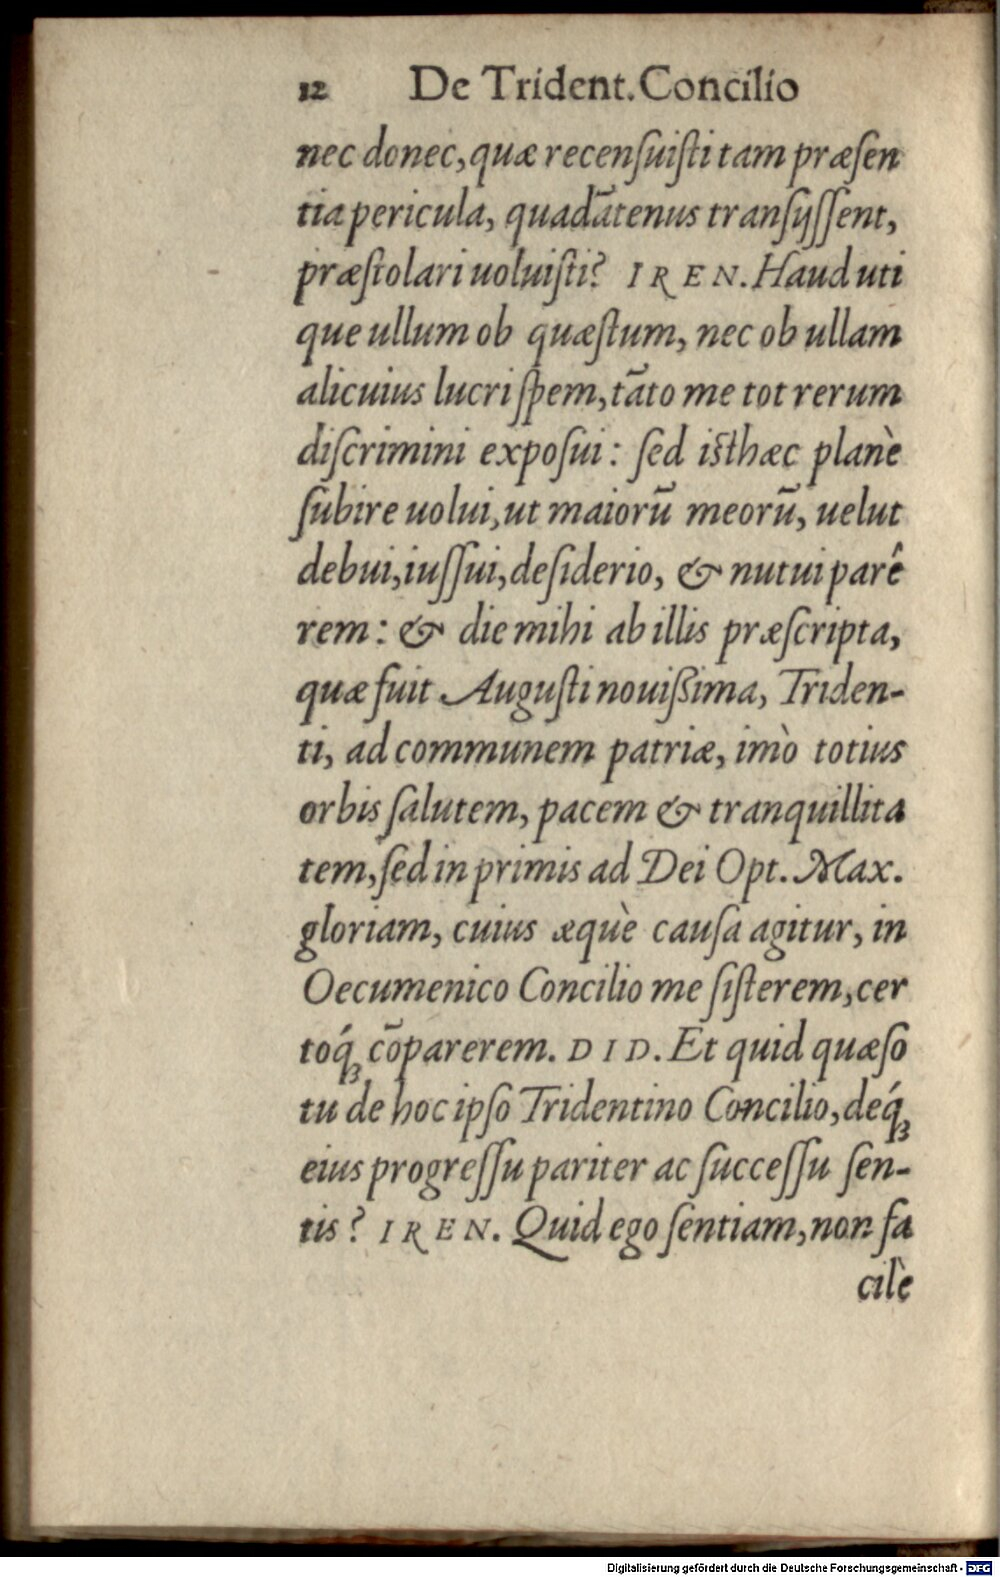 12 De Trident. Concilio
nec donec, quæ recenſuiſti tam præſen
tia pericula, quadātenus tranſijſſent,
præſtolari uoluiſti? IREN. Haud uti
que ullum ob quæſtum, nec ob ullam
alicuius lucri ſpem, tāto me tot rerum
diſcrimini expoſui: ſed iſthæc planè
ſubire uolui, ut maiorū meorū, uelut
debui, iuſſui, deſiderio, & nutui parê
rem: & die mihi ab illis præſcripta,
quæ fuit Auguſti nouißima, Triden-
ti, ad communem patriæ, imò totius
orbis ſalutem, pacem & tranquillita
tem, ſed in primis ad Dei Opt. Max.
gloriam, cuius æquè cauſa agitur, in
Oecumenico Concilio me ſiſterem, cer
toq́ꝫ cōparerem. DID. Et quid quæſo
tu de hoc ipſo Tridentino Concilio, deq́ꝫ
eius progreſſu pariter ac ſucceſſu ſen-
tis? IREN. Quid ego ſentiam, non fa
cilè
Digitalisierung gefördert durch die Deutsche Forschungsgemeinschaft - DFG